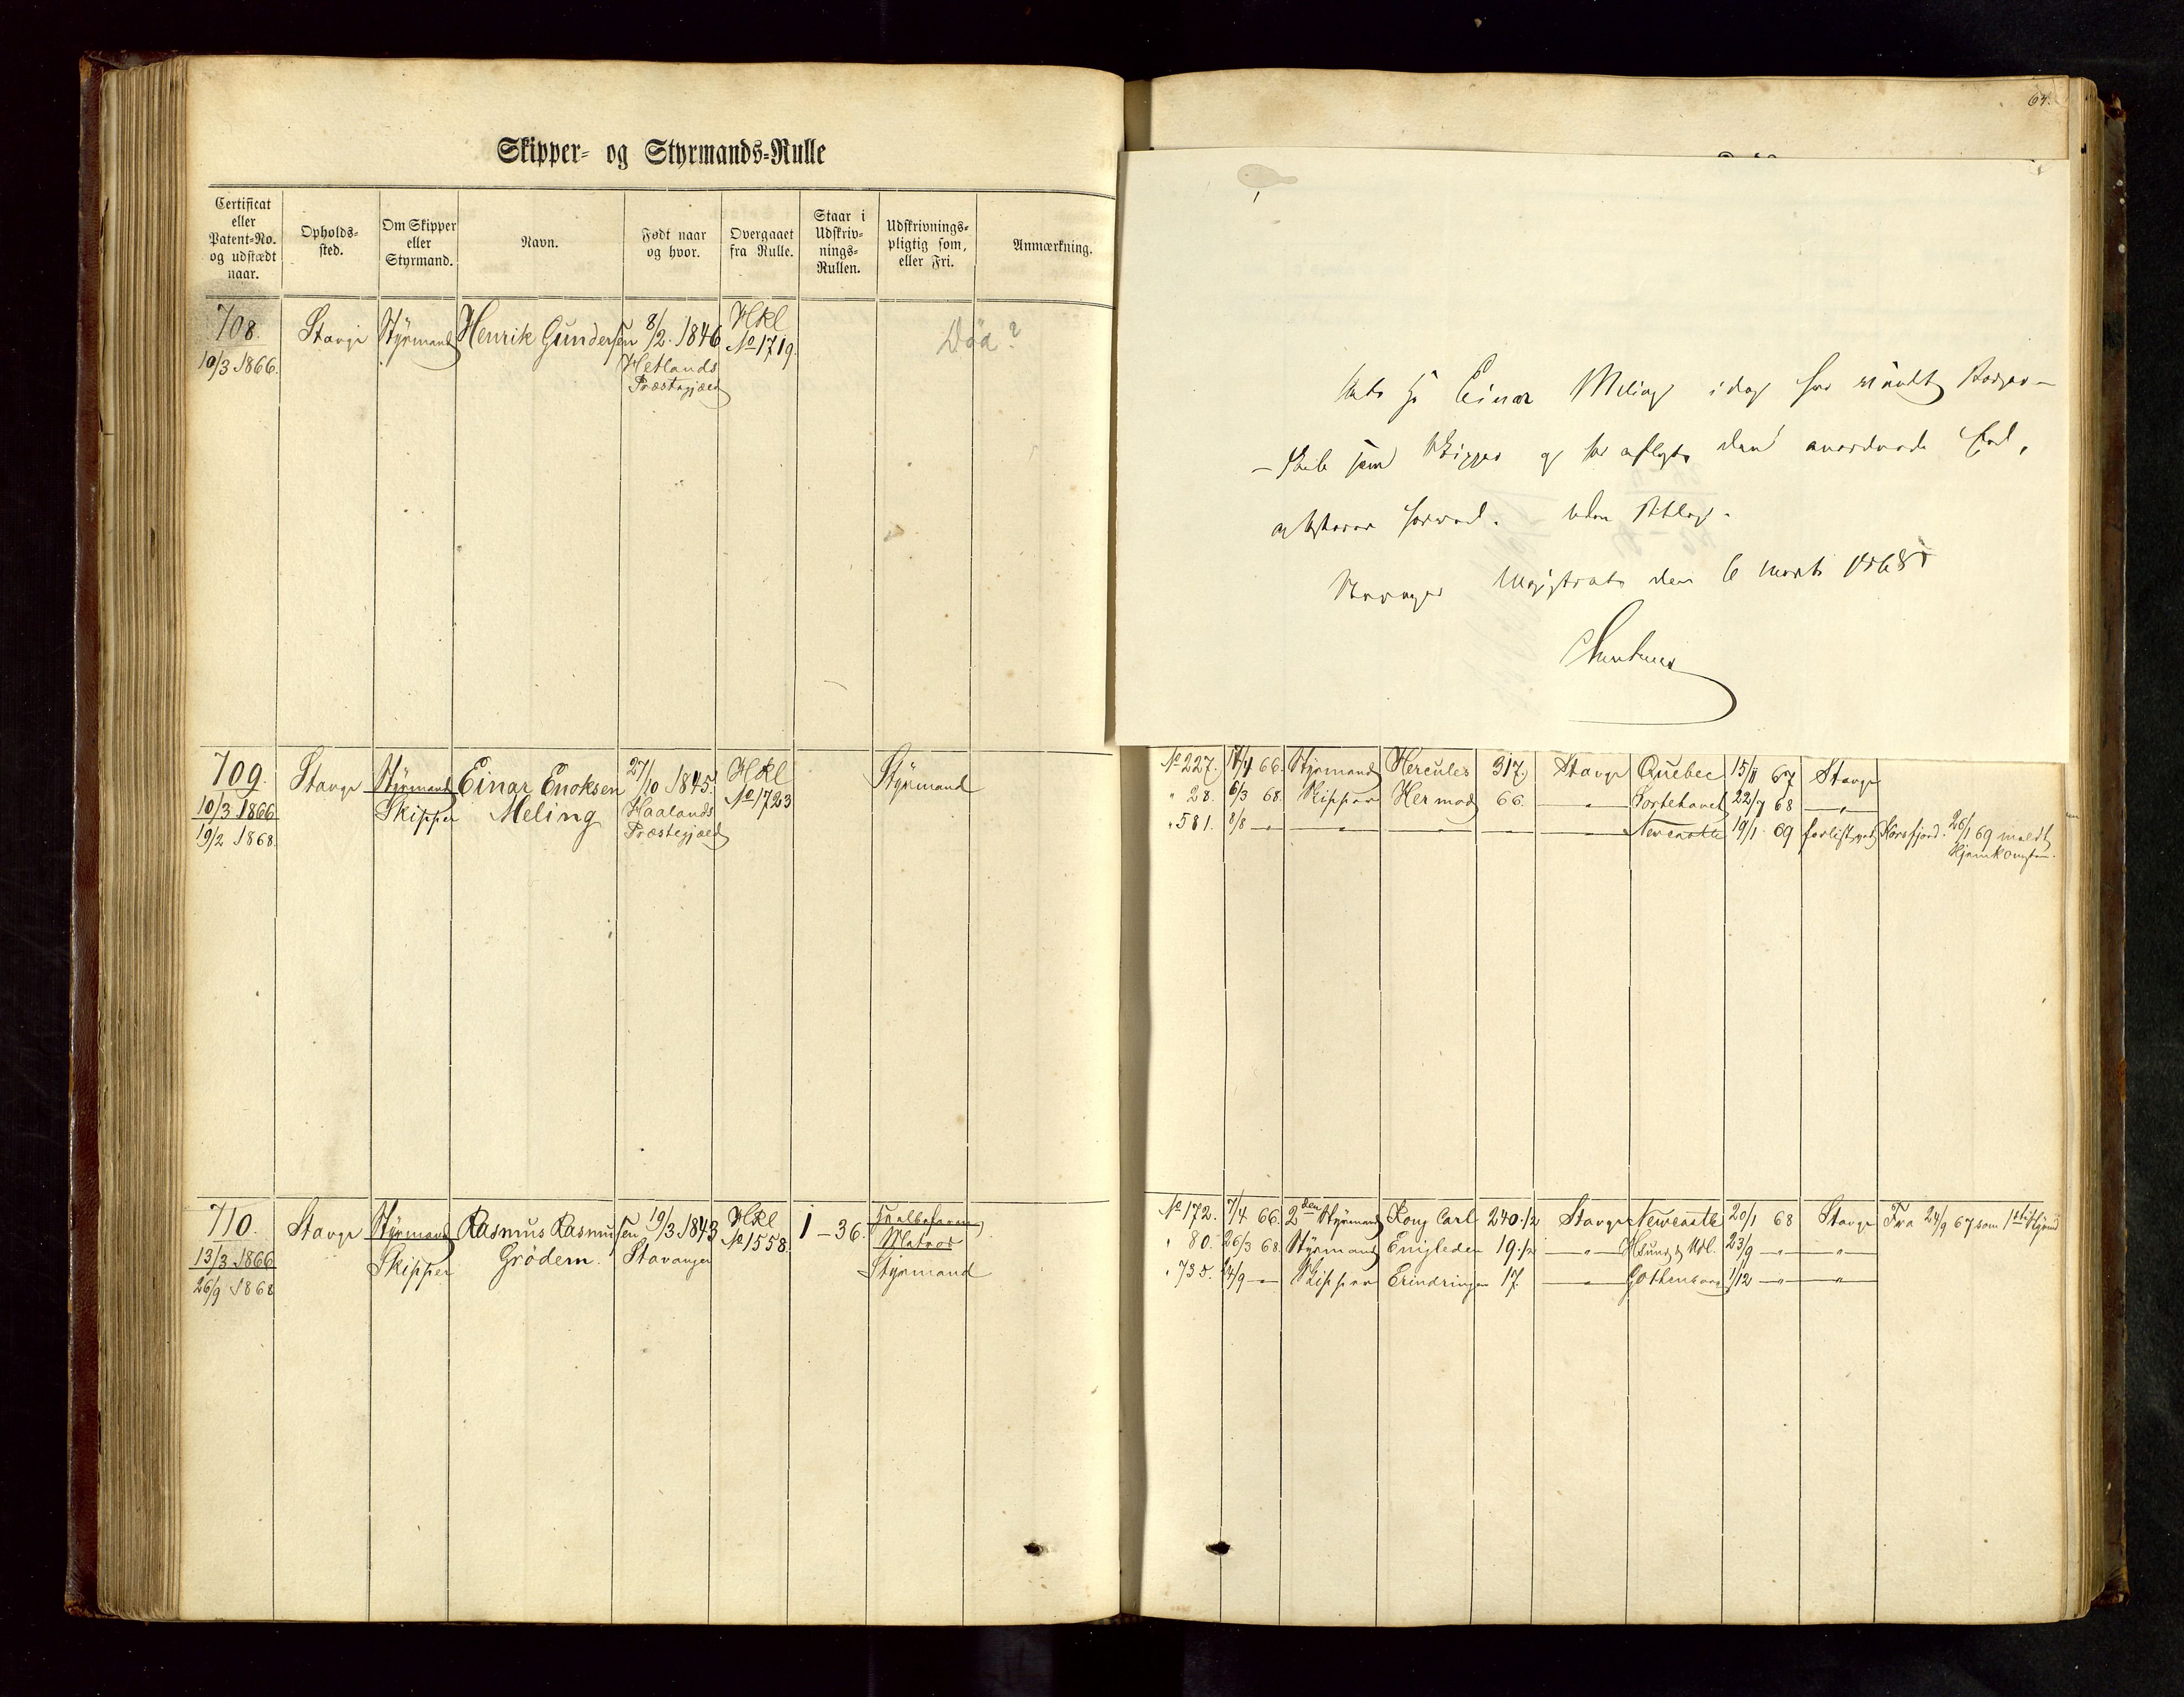 64.
Skipper- og Styrmands-Rulle
Certificat eller Patent-No. og udstædt naar.
Opholds-sted.
Om Skipper eller Styrmand.
Navn.
Født naar og hvor.
Overgaaet fra Rulle.
Staar i Udskriv-nings-Rullen.
Udskrivnings-pligtig som, eller Fri.
Anmærkning.
708. Stavgr Styrmand Henrik Gundersen 8/2. 1846 HKl Død?
10/3 1866. Hetlands No 1719.
Præstegjæld
709. Stavgr Styrmand Einar Enoksen 27/10 1845. HKl Styrmand
10/3 1866 Skipper Meling Haalands No 1723
19/2 1868. Præstegjæld
710. Stavgr Styrmand Rasmus Rasmussen 19/3 1843 HKl 1-36. Halvbefaren
13/3 1866 Skipper Grödem. Stavanger No 1558. Matros
26/9 1868 Styrmand
Einar Meling idag har
som Skipper og har aflagt den anordnede Eed,
Stavanger Magistrat den 6 Marts 1868
No 227. 17/4 66. Styrmand Hercules 317. Stavgr Quebec 15/11 67 Stavgr
" 28. 6/3 68. Skipper Hermod 66. — " — Sortehavet 22/7 68 — " —
" 581. 8/8 — " — — " — — " — — — " — Newcastle 19/1 69 forlist ved Korsfjord. 26/1 69 meldt
Hjemkomsten.
No 172. 7/4 66. 2den Styrmand Kong Carl 240 1/2 Stavgr Newcastle 20/1 68 Stavgr Fra 24/9 67 som 1ste Styrmd
" 80. 26/3 68. Styrmand Enigheden 19 1/2 — " — 23/9 — " — — " —
" 735. 24/9 — " — Skipper Erindringen 17. — " — Gottenborg 1/12 — " — — " —